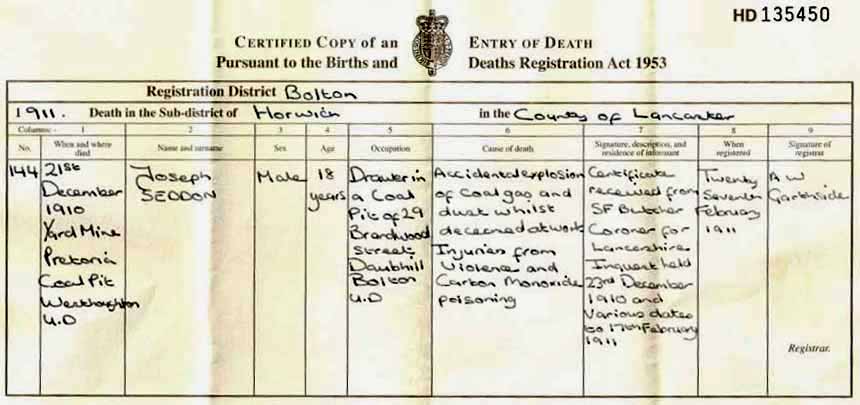 HD 135450
CERTIFIED COPY of an ENTRY OF DEATH
Pursuant to the Births and Deaths Registration Act 1953
Registration District Bolton
1911. Death in the Sub-district of Horwich in the County of Lancaster
Columns:- 1 2 3 4 5 6 7 8 9
No. When and where died Name and surname Sex Age Occupation Cause of death Signature, description, and residence of informant When registered Signature of registrar
144
21st
December
1910
Yard Mine
Pretoria
Coal Pit
Westhoughton
U.D
Joseph
SEDDON
Male
18
years
Drawer in
a Coal
Pit of 29
Brandwood
Street
Daubhill
Bolton
U.D
Accidental explosion
of Coal gas and
dust whilst
deceased at work
Injuries from
Violence and
Carbon Monoxide
poisoning
Certificate
received from
SF Butcher
Coroner for
Lancashire
Inquest held
23rd December
1910 and
Various dates
to 17th February
1911
Twenty
Seventh
February
1911
A W
Garthside
Registrar.